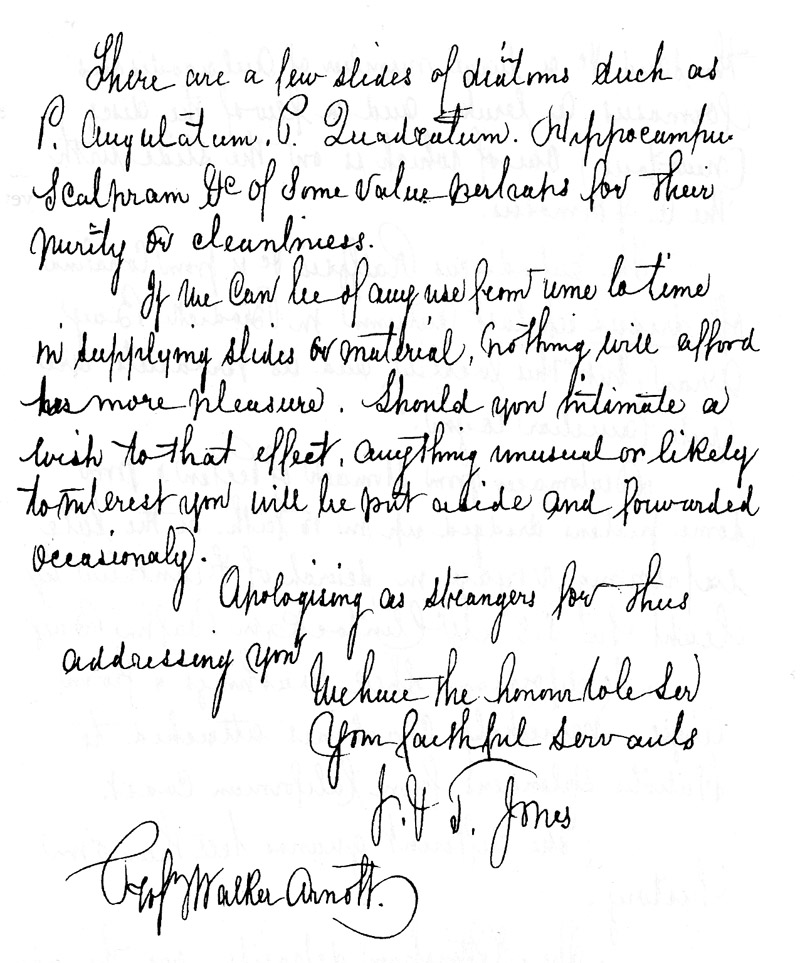 There are a few slides of diatoms such as
P. Angulatum. P. Quadratum. Hippocampu
Scalpram &c of some value perhaps for their
purity or cleanliness.
If we can be of any use from time to time
in supplying slides or material, nothing will afford
us more pleasure. Should you intimate a
wish to that effect, anything unusual or likely
to interest you will be put aside and forwarded
occasionaly.
Apologising as strangers for thus
addressing you
We have the honour to be Sir
Your faithful servants
J. & T. Jones
Profr Walker Arnott.